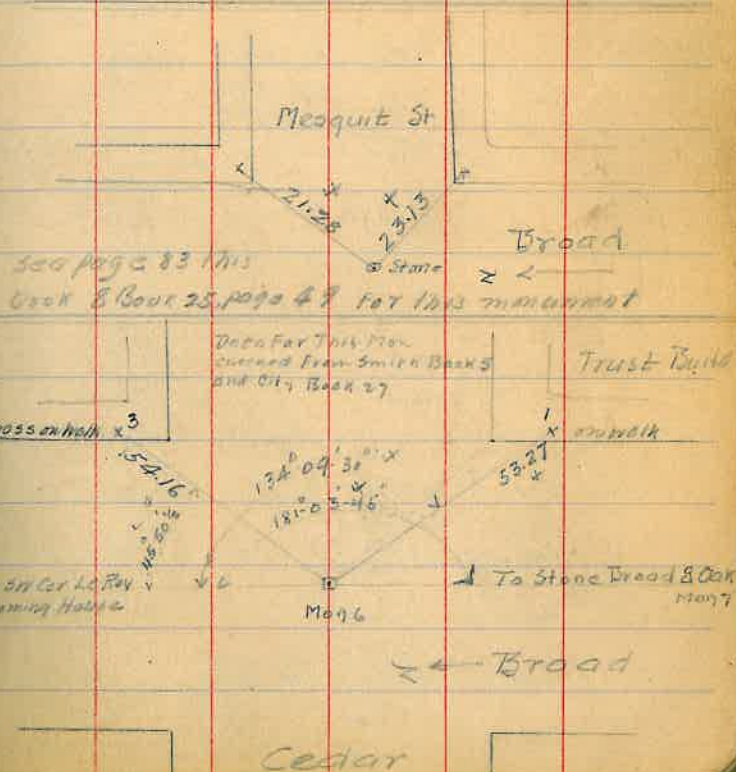 Mesquit St
21.28
23.13
Broad
Stone
N
see page 83 this
book & Book 25, page 49 For this monument
Data For This Mon
checked From Smith Book 5
and City Book 27
Trust Build
ross on walk x 3
1 x on walk
54.16
53.27
134° 09' 30" x
181-03-45"
45-50
SW Cor Le Roy
oming House
L
Mon 6
To Stone Broad & Oak
Mon 7
N Broad
Cedar